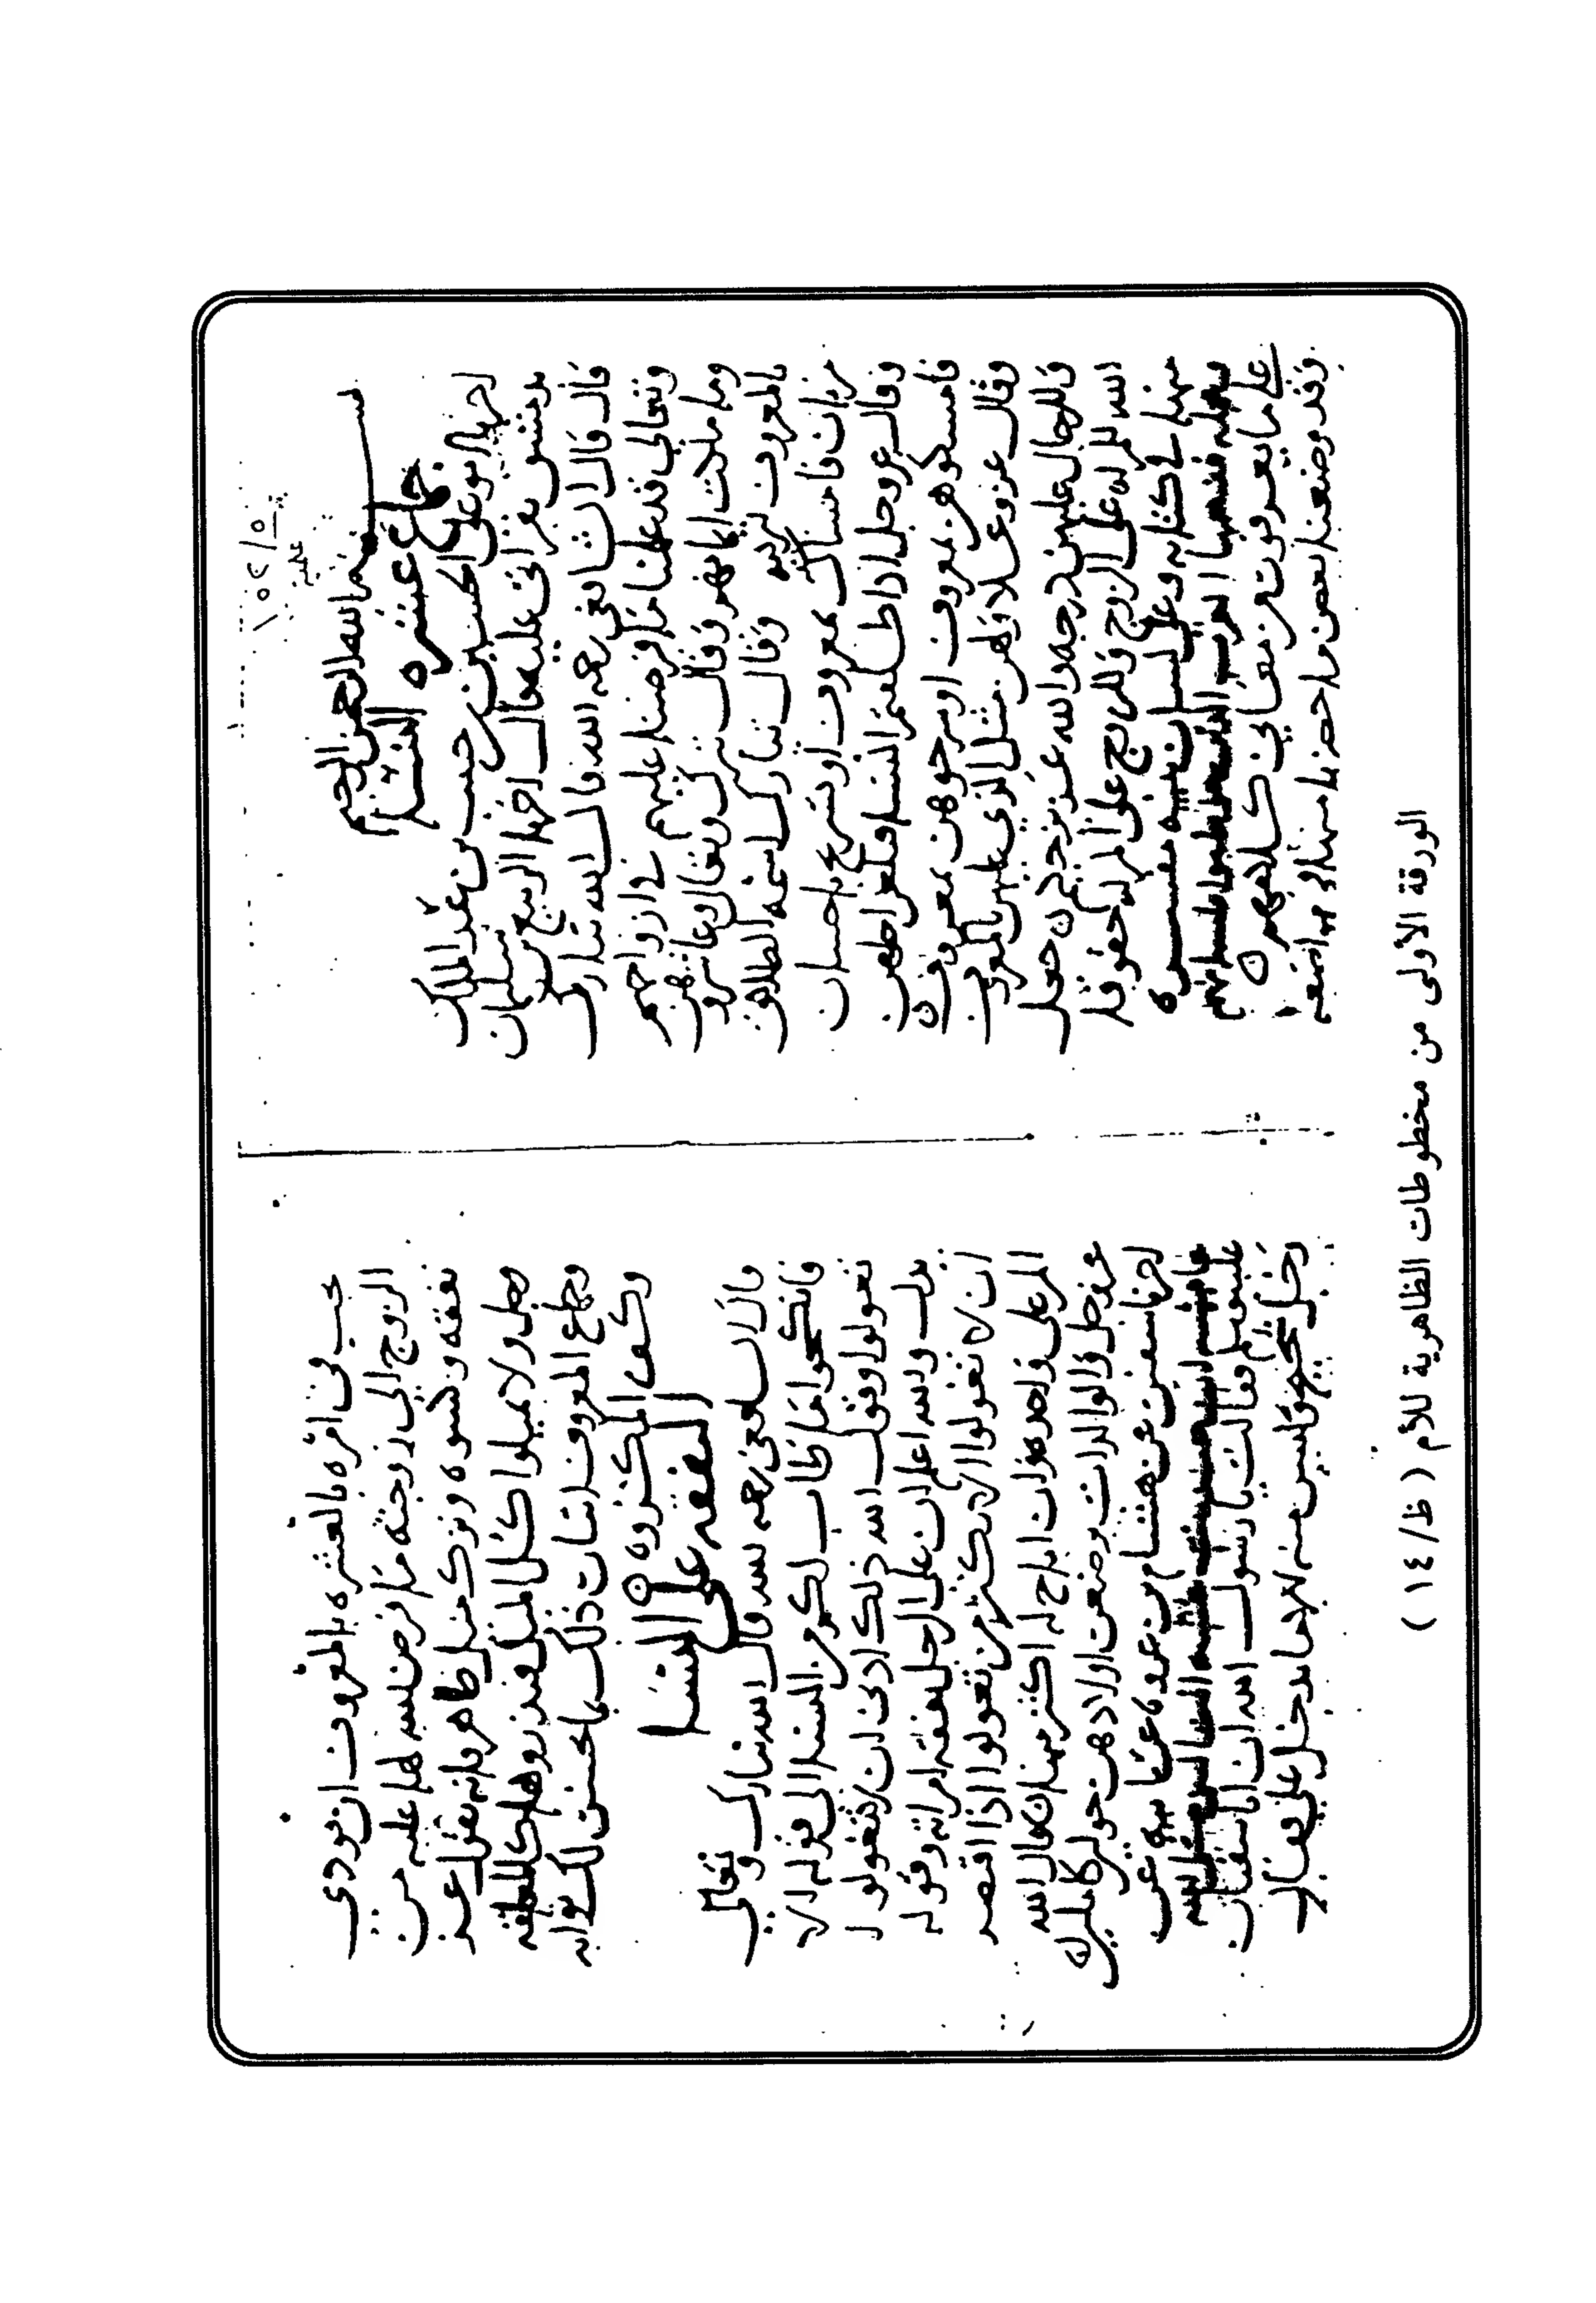 بسم الله الرحمن الرحيم
جماع عشرة النسا
اخبرنا ابو علي الحسين بن حبيب بن عبد الملك
بدمشق بقراتي عليه قال اخبرنا الربيع بن سليمان
قال قال الشافعي رحمه الله قال الله تبارك
وتعالى قد علمنا ما فرضنا عليهم في ازواجهم
وما ملكت ايمانهم وقال تبارك وتعالى وعاشروهن
بالمعروف وقال تبارك اسمه الطلاق
مرتان فامساك بمعروف او تسريح باحسان
وقال عز وجل اذا طلقتم النسا فبلغن اجلهن
فامسكوهن بمعروف او سرحوهن بمعروف
وقال عز وعلا ولهن مثل الذي عليهن بالمعروف
وللرجال عليهن درجه والله عزيز حكيم جعل
الله للمراه على الزوج وللزوج على المراه حقوقا
بينها في كتابه وعلى لسان نبيه مفسره
ومجمله ففهمها العرب الذين خوطبوا بلسانهم
على ما يعرفون من معاني كلامهم
وقد وضعنا بعض ما حضرنا منها في مواضعه
يجب في امره بالعشره بالمعروف ان يودي
الزوج الى زوجته ما فرض الله لها عليه من
نفقه وكسوه وترك ميل ظاهر فانه يقول عز
وجل ولا تميلوا كل الميل فتذروها كالمعلقه
وجماع المعروف اتيان ذلك بما يحسن لك ثوابه
وكف المكروه
النفقه على النسا
قال الشافعي رحمه الله قال الله تبارك وتعالى
فانكحوا ما طاب لكم من النسا الى قوله الا
تعولوا وقول الله ذلك ادنى ان لا تعولوا
يدل والله اعلم ان على الرجل نفقه امراته وقوله
ان لا تعولوا الا يكثر من تعولوا اذا اقتصر
المر على واحده وان اباح له اكثر منها قال الله
عز وجل والوالدات يرضعن اولادهن حولين كاملين
اخبرنا سفين عن هشام بن عروه عن ابيه عن
عايشه ان هند اتت النبي صلى الله
عليه وسلم فقالت يا رسول الله ان ابا سفيان
رجل شحيح وليس منه الا ما يدخل علي فقال
الورقة الأولى من مخطوطات الظاهرية للأم ( ظ/١٤ )